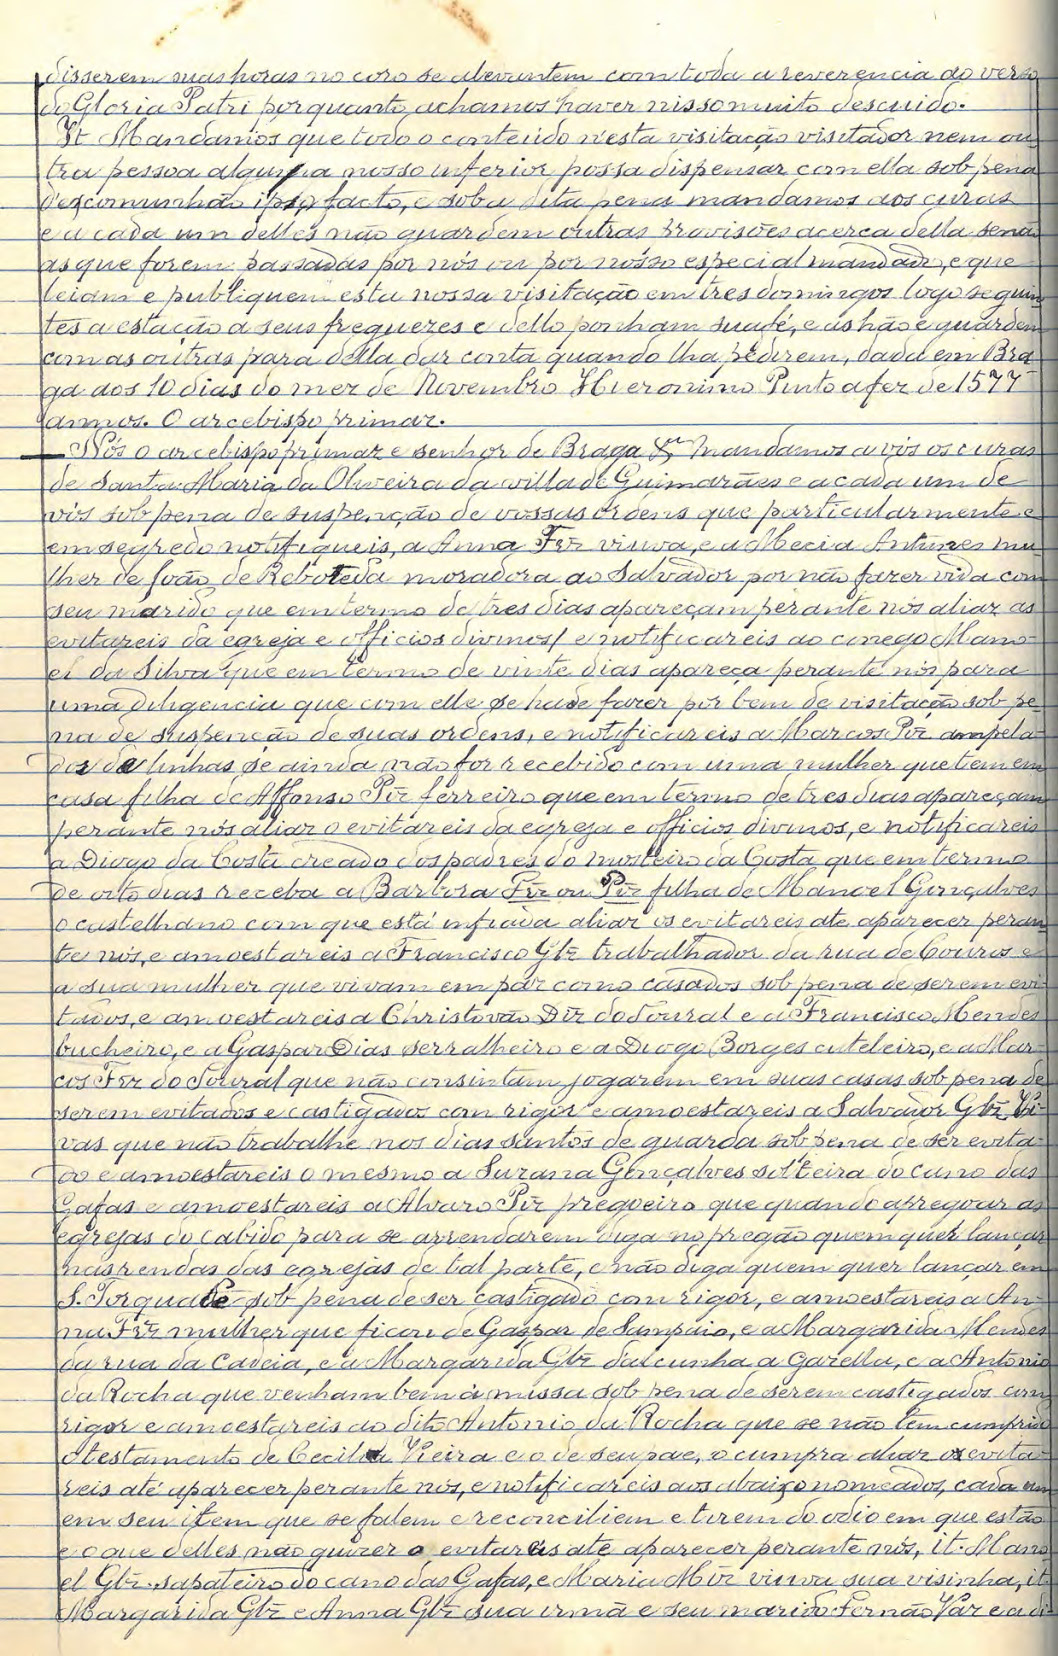 disserem suas horas no coro se alevantem com toda a reverencia ao verso
do Gloria Patri porquanto achamos haver nisso muito descuido.
It Mandamos que todo o conteúdo n'esta visitação visitador nem ou-
tra pessoa alguma nosso inferior possa dispensar com ella sob pena
d'excomunhão ipso facto, e sob a dita pena mandamos aos curas
e a cada um delles não guardem outras provisões acerca della senão
as que forem passadas por nós ou por nosso especial mandado, e que
leiam e publiquem esta nossa visitação em tres domingos logo seguin
tes a estação a seus freguezes e dello ponham sua fé, e as hão e guardem
com as outras para della dar conta quando lha pedirem, dada em Bra
ga aos 10 dias do mez de Novembro Hieronimo Pinto a fez de 1577
annos. O arcebispo primaz.
— Nós o arcebispo primaz e senhor de Braga &ª Mandamos a vós os curas
de Santa Maria da Oliveira da villa de Guimarães e a cada um de
vós sob pena de suspenção de vossas ordens que particularmente e
em segredo notifiqueis, a Anna Frz viuva, e a Mecia Antunes mu
lher de João de Reboteda moradora ao Salvador por não fazer vida com
seu marido que em termo de tres dias apareçam perante nós aliaz as
evitareis da egreja e officios divinos/ e notificareis ao conego Mano-
el da Silva que em termo de vinte dias apareça perante nós para
uma diligencia que com elle se hade fazer por bem de visitação sob pe
na de suspenção de suas ordens, e notificareis a Marcos Piz
dor de linhas se ainda não for recebido com uma mulher que tem em
casa filha de Affonso Piz ferreiro que em termo de tres dias apareçam
perante nós aliaz o evitareis da egreja e officios divinos, e notificareis
a Diogo da Costa creado dos padres do mosteiro da Costa que em termo
de oito dias receba a Barbora Frz ou Piz filha de Manoel Gonçalves
o castelhano com que está infiada aliaz os evitareis até aparecer peran
te nós, e amoestareis a Francisco Glz trabalhador da rua de Couros e
a sua mulher que vivam em paz como casados sob pena de serem evi
tados, e amoestareis a Christovão Diz do Toural e a Francisco Mendes
bucheiro, e a Gaspar Dias serralheiro e a Diogo Borges cuteleiro, e a Mar-
cos Frz do Toural que não consintam jogarem em suas casas sob pena de
serem evitados e castigados com rigor e amoestareis a Salvador Glz Vi-
vas que não trabalhe nos dias santos de guarda sob pena de ser evita-
do e amoestareis o mesmo a Suzana Gonçalves solteira do cano das
Gafas e amoestareis a Alvaro Piz pregoeiro que quando apregoar as
egrejas do cabido para se arrendarem diga no pregão quem quer lançar
nas rendas das egrejas de tal parte, e não diga quem quer lançar em
S. Torquade sob pena de ser castigado com rigor, e amoestareis a An-
na Frz mulher que ficou de Gaspar de Sampaio, e a Margarida Mendes
da rua da Cadeia, e a Margarida Glz da cunha a gazella, e a Antonio
da Rocha que venham bem á missa sob pena de serem castigados com
rigor e amoestareis ao dito Antonio da Rocha que se não tem cumprido
o testamento de Cecilia Vieira e o de seu pae, o cumpra aliaz o evita-
reis até aparecer perante nós, e notificareis aos abaixo nomeados, cada um
em seu item que se falem e reconciliem e tirem do odio em que estão
e o que delles não quizer o evitareis até aparecer perante nós, it. Mano
el Glz sapateiro do cano das Gafas, e Maria Miz viuva sua visinha, it.
Margarida Glz e Anna Glz sua irmã e seu marido Fernão Vaz e a di